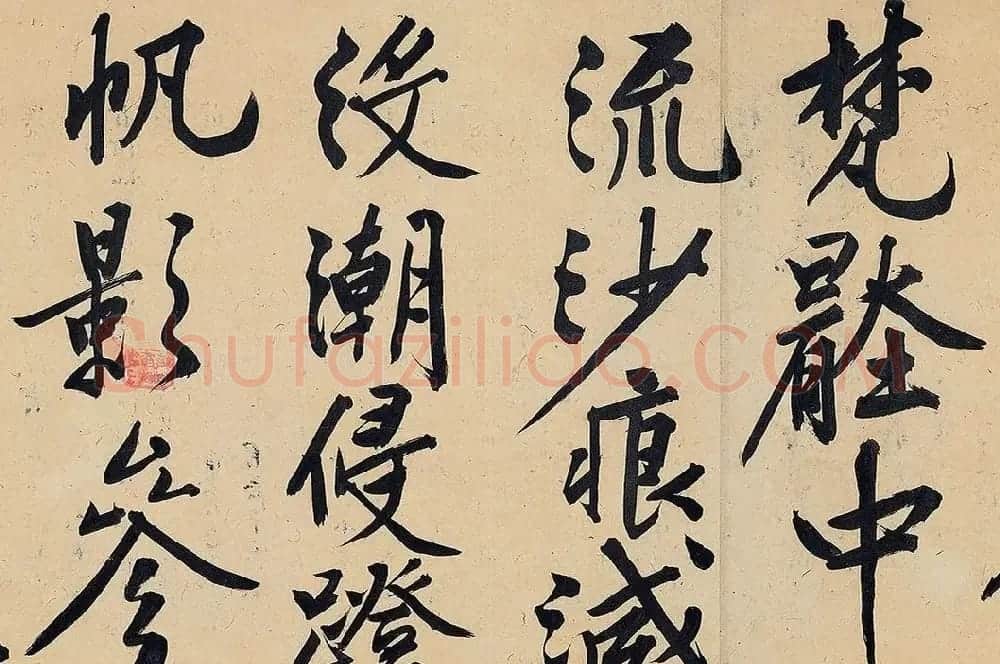 梵中
流沙痕滅
没潮侵蹬
帆影參
Shufaziliao.COM